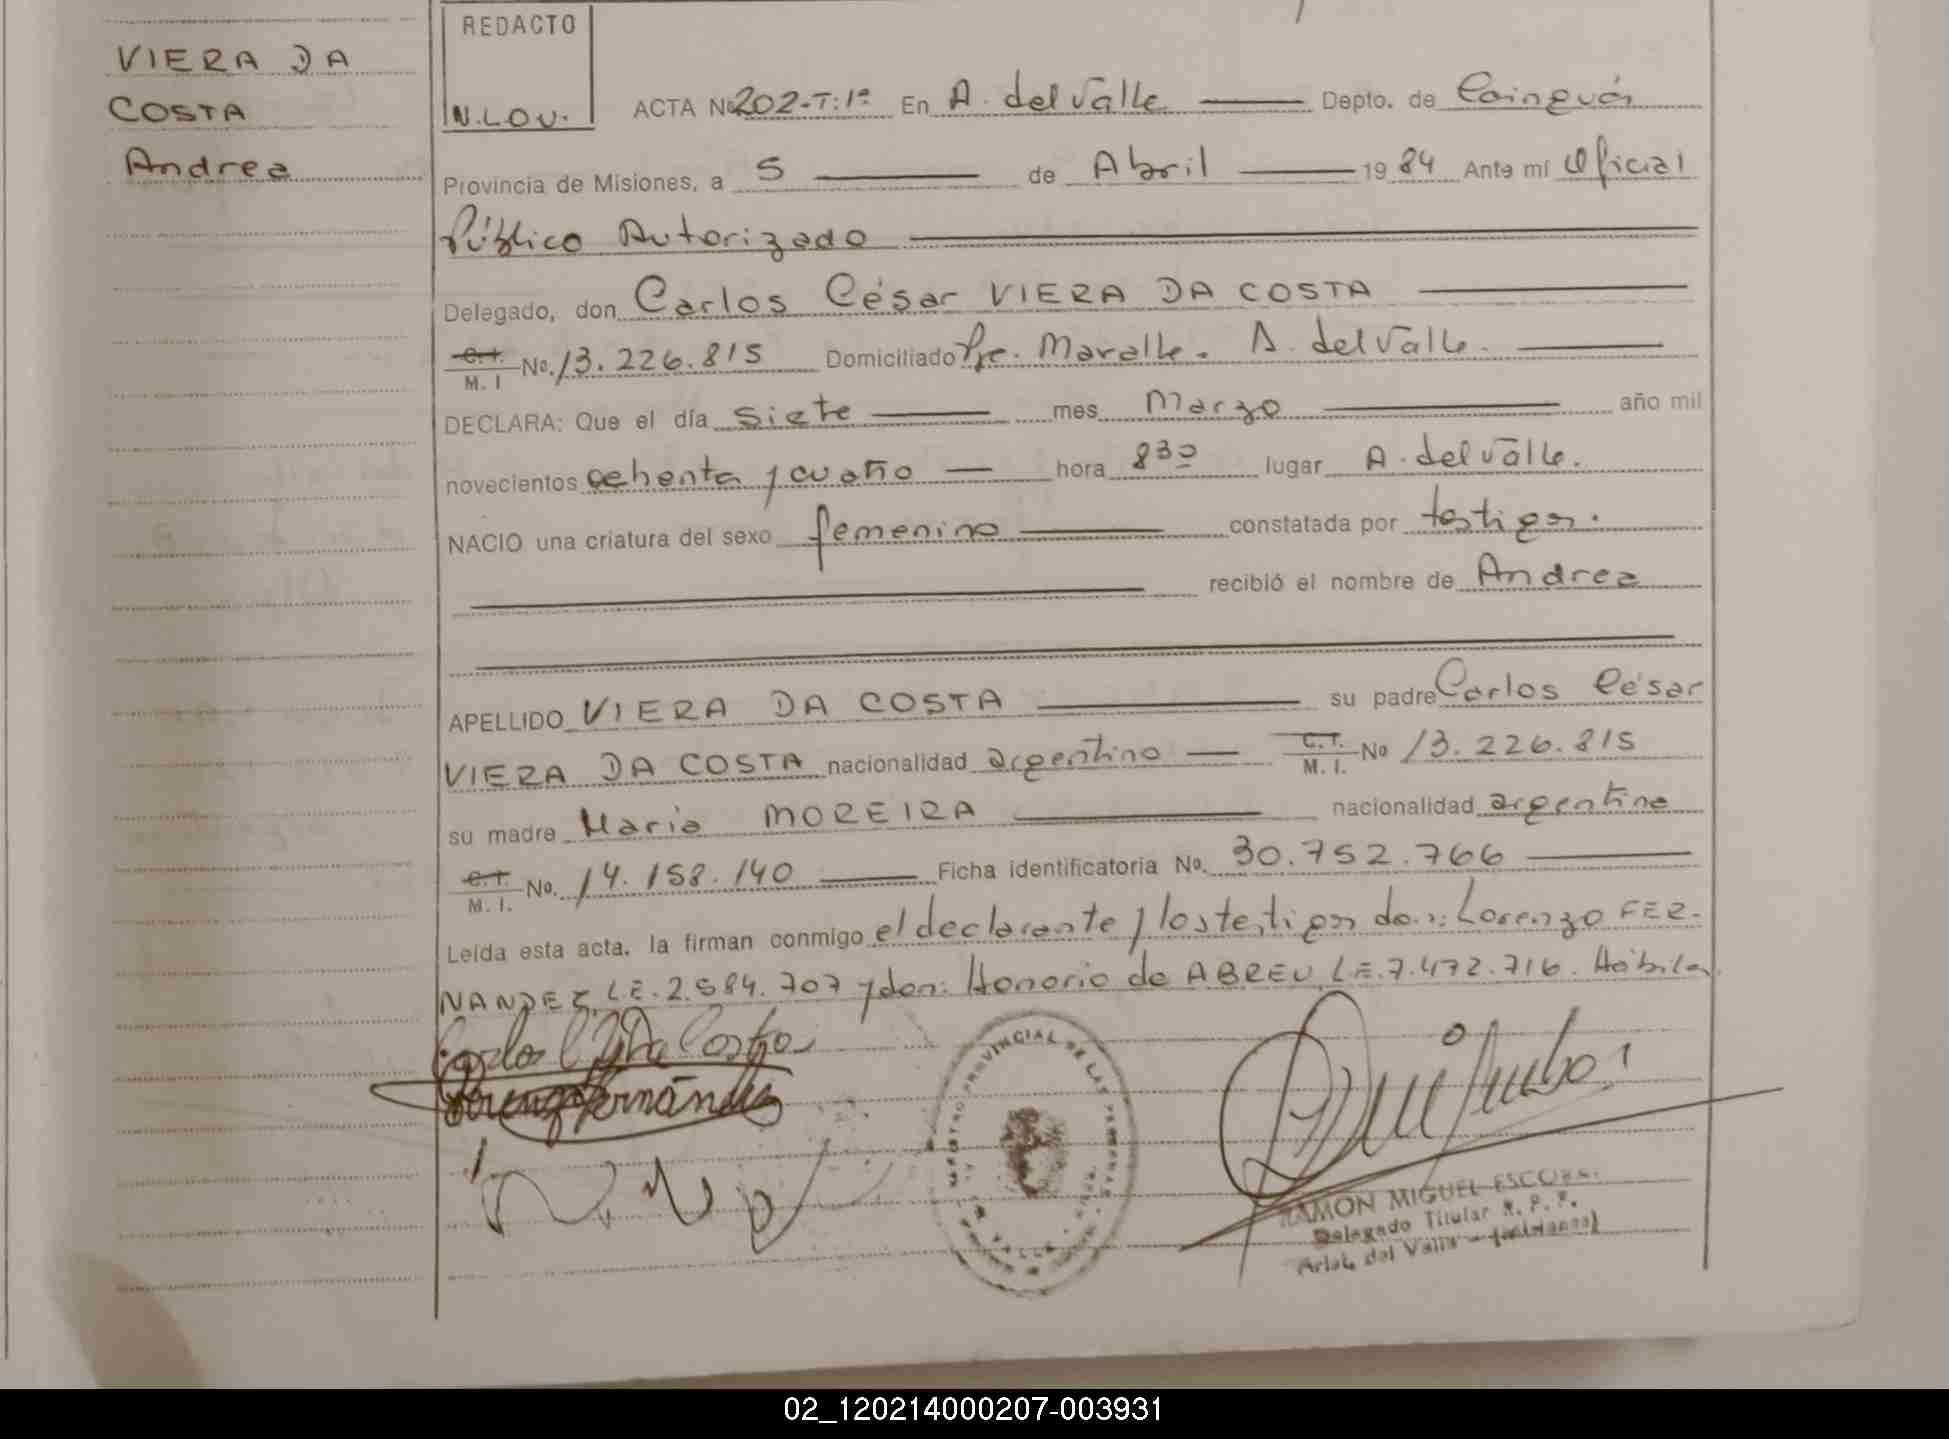 VIERA DA
COSTA
Andrea
REDACTO
N.L.O.V.
ACTA Nº 202-T:1º En A. del Valle Depto. de Cainguás
Provincia de Misiones, a 5 de Abril 1984 Ante mí Oficial
Público Autorizado
Delegado, don Carlos César VIERA DA COSTA
C.I. M. I No. 13.226.815 Domiciliado Pje. Maralle. A. del Valle.
DECLARA: Que el día siete mes Marzo año mil
novecientos ochenta y cuatro hora 830 lugar A. del Valle.
NACIO una criatura del sexo femenino constatada por testigos.
recibió el nombre de Andrea
APELLIDO VIERA DA COSTA su padre Carlos César
VIERA DA COSTA nacionalidad argentino C.I. M. I. No 13.226.815
su madre Maria MOREIRA nacionalidad argentina
C.I. M. I. No. 14.158.140 Ficha identificatoria No. 30.752.766
Leída esta acta, la firman conmigo el declarante y los testigos don: Lorenzo FER-
NANDEZ, L.E. 2.584.707 y don: Honorio de ABREU, L.E. 7.472.716. Hábiles
Lorenzo Fernández
REGISTRO PROVINCIAL DE LAS PERSONAS
RAMON MIGUEL ESCOBAR
Delegado Titular R. P. P.
Aristó. del Valle - (Misiones)
02_120214000207-003931